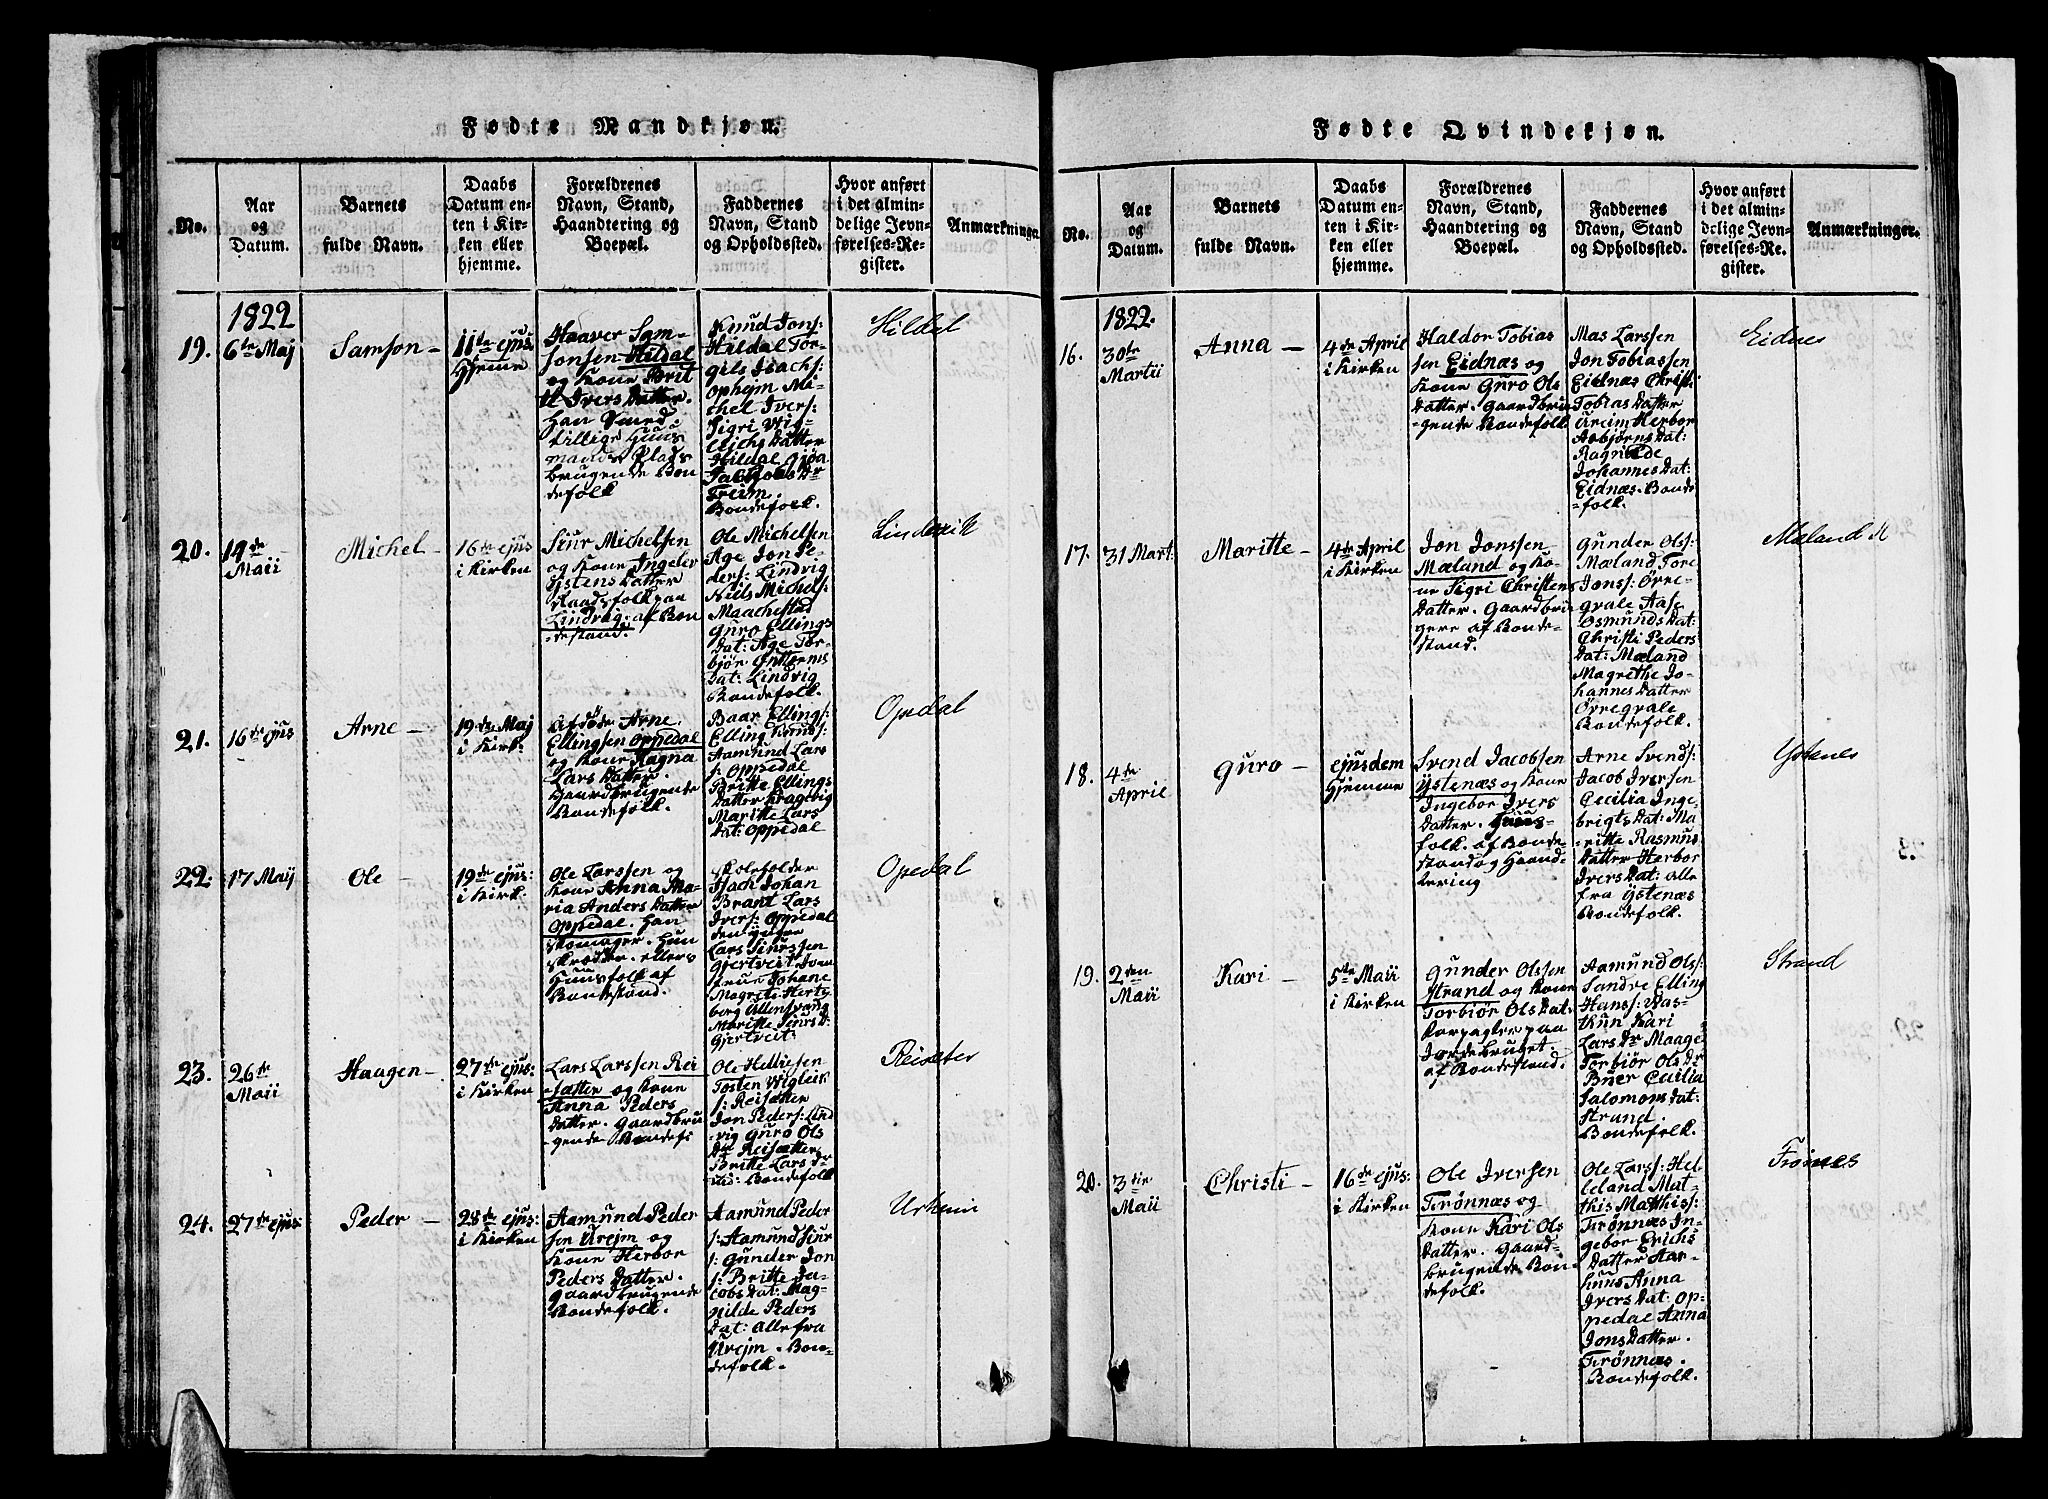 Fødte Mandkjøn.
No.
Aar
og
Datum.
Barnets
fulde Navn.
Daabs
Datum en-
ten i Kir-
ken eller
hjemme.
Forældrenes
Navn, Stand,
Haandtering og
Boepæl.
Faddernes
Navn, Stand
og Opholdssted.
Hvor anført
i det almin-
delige Jevn-
førelses-Re-
gister.
Anmærkninger
1822
19.
6te Maj
Samson -
11te ejusd
Hjemme
Haaver Sam-
sonsen Hildal
og Kone Brit
Ivers Datter.
han Smed
tillige Huus
mands Plads
brugende Bon
defolk
Knud Jons:
Hildal Tor-
gils Isachs:
Ophejm
Ivers:
Sigri
Datter
Hildal Gjøa
Jachobs Dr
Freim.
Bondefolk.
Hildal
20.
14de
Maii
Michel -
16de ejus
i Kirken
Siur Michelsen
og Kone Ingeler
Ystens Datter
Raadsfolk paa
Lindvig: af Bon
destand.
Ole Michelsen
Age Jon Pe-
ders: Lindvig
Niels Michels:
Maachestad
Guro Ellings
Dat: Age Tor-
bjør Guttorms
Dat: Lindvig
Bondefolk.
Lindevik
21.
16de ejus
Arne -
19de Maj
i Kirk:
Afdøde Arne
Ellingsen Oppedal
og Kone Ragna
Lars Datter.
Gaardbrugende
Bondefolk.
Baar Ellings:
Elling
Aamund Lars
s: Oppedal
Britte Ellings
Datter Kragevig
Maritte Lars
Dat: Oppedal
Opedal
22.
17 Maij
Ole -
19de ejus:
i Kirk.
Ole Larssen og
Kone Anna Ma-
ria Anders Datter
Oppedal. han
skomager. hun
skredder. ellers
Huusfolk af
Bondestand.
Skoleholder
Isach Johan
Brant Lars
Ivers: Oppedal
den yngre
Lars Siurssen
Gjertveit Jom
frue Johane
Magrete Herte
berg Ullensvang
Maritte Siurs D:
Gjertveit:
Opedal
23.
26de
Maii
Haagen -
27de ejus:
i Kirken
Lars Larssen Rei
sætter og Kone
Anna Peders
Datter. Gaardbru
gende Bondefs
Ole Helliesen
Tosten Wigleik
s: Reisæter
Jon Peders: Lind
vig Guro Ols
Dtr Reisætter
Britte Lars Dr
Bondefolk
Reiseter
24.
27de ejus:
Peder -
28de ejus:
i Kirken
Aamund Peder
sen Urejm og
Kone Herbor
Peders Datter.
Gaardbrugende
Bondefolk.
Aamund Peder
s: Aamund Siur
s: Gunder Jon
s: Britte Ja-
cobs Dat: Mag-
nilde Peders
Dat: Alle fra
Urejm. Bon-
defolk.
Urheim
Fødte Qvindekjøn.
No.
Aar
og
Datum.
Barnets
fulde Navn.
Daabs
Datum en-
ten i Kir-
ken eller
hjemme.
Forældrenes
Navn, Stand,
Haandtering og
Boepæl.
Faddernes
Navn, Stand
og Opholdssted.
Hvor anført
i det almin-
delige Jevn-
førelses-Re-
gister.
Anmærkninger.
1822.
16.
30te
Martii
Anna -
4de April
i Kirken
Haldor Tobias
sen Eidnæs og
Kone Guro Ols
Datter. Gaardbru
gende Bondefolk
Mas Larssen
Jon Tobiassen
Eidnæs Christi
Tobias Datter
Ureim Herbor
Asbjørns Dat:
Ragnilde
Johannes Dat:
Eidnæs. Bonde
folk.
Eidnes
17.
31 Mart.
Maritte -
4de April
i Kirken
Jon Jonssen
Mæland og Ko-
ne Sigri Christens
Datter. Gaardbru
gere af Bonde-
stand.
Gunder Ols:
Mæland Tore
Jons: Ørre-
gvale Aase
Osmunds Dat:
Christi Peders
Dat: Mæland
Magrethe Jo-
hannes Datter
Ørregvale
Bondefolk.
Mæland
18.
4de
April
Guro -
ejusdem
Hjemme
Svend Jacobsen
Ystenæs og Kone
Ingebor Ivers
Datter. Huus-
folk. af Bonde-
stand og Haand-
tering
Arne Svends:
Jacob Iversen
Cecilia Inge-
brigts Dat: Ma-
ritte Rasmus
Datter Herbor
Ivers Dat: Alle
fra Ystenæs
Bondefolk.
Ystenes
19.
2den
Maii
Kari -
5te Maii
i Kirken
Gunder Olssen
Strand og Kone
Torbiør Ols Dat.
Forpagter paa
Jordebruget.
af Bondestand.
Aamund Ols:
Sandre Elling
Hans:
Kari
Lars Dr Maage
Torbiør Ols Dr
Buer Cecilia
Salomons Dat:
Strand.
Bondefolk.
Strand
20.
3die
Maii
Christi -
16de ejus:
i Kirken
Ole Iversen
Frønnæs og
Kone Kari Ols
Datter. Gaard-
brugende Bon-
defolk.
Ole Larss: Hel-
leland Mat-
this Matthiss:
Frønnæs In-
gebor Erichs
Datter Aar-
huus Anna
Ivers Dat: Op-
pedal Anna
Jons Datter.
Frønnæs.
Bondefolk.
Frønes